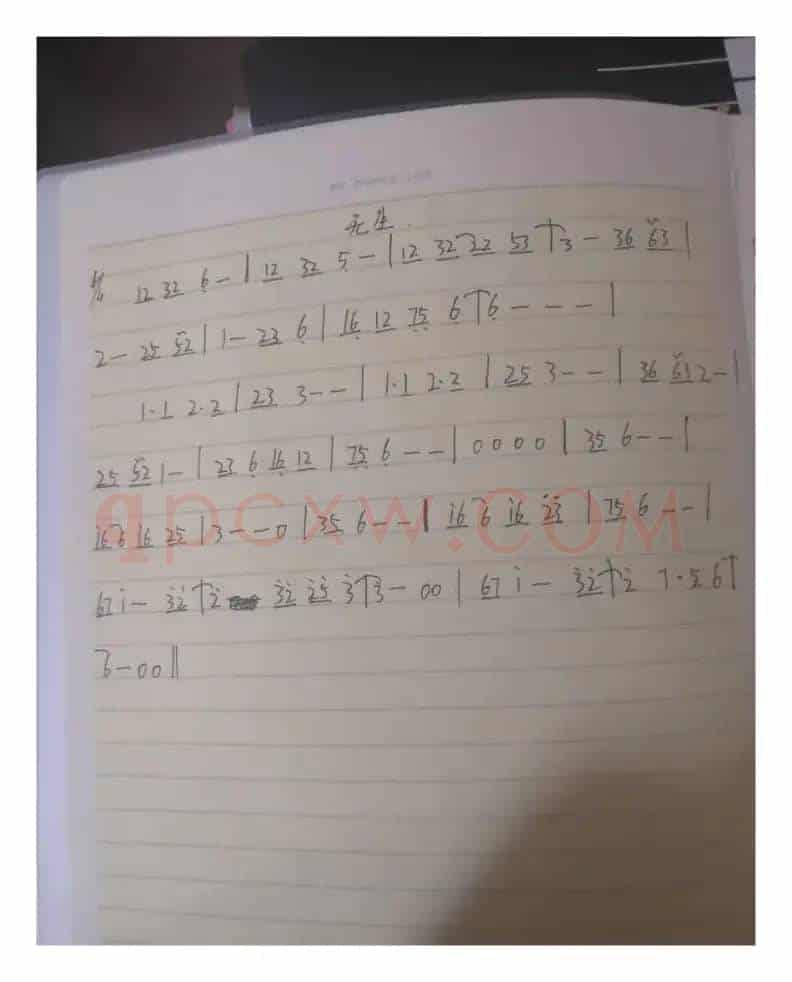 无坐
12 32 6 - | 12 32 5 - | 12 32 32 53 | 3 - 36 63 |
2 - 25 52 | 1 - 23 6 | 16 12 75 6 | 6 - - - |
1·1 2·2 | 23 3 - - | 1·1 2·2 | 25 3 - - | 36 63 2 - |
25 52 1 - | 23 6 16 12 | 75 6 - - | 0 0 0 0 | 35 6 - - |
qpcxw.com
16 6 16 25 | 3 - - 0 | 35 6 - - | 16 6 16 23 | 75 6 - - |
67 i - 32 | 2 32 25 3 | 3 - 00 | 67 i - 32 | 2 7·5 6 |
6 - 00 ‖